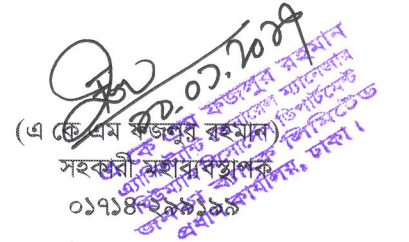 ১০.০১.২০১৭
(এ কে এম ফজলুর রহমান)
সহকারী মহাব্যবস্থাপক
০১৭১৪-২৯৯১৯৯
এ কে এম ফজলুর রহমান
এ্যাসিস্ট্যান্ট জেনারেল ম্যানেজার
ডিপার্টমেন্ট
জনতা ব্যাংক লিমিটেড
প্রধান কার্যালয়, ঢাকা।